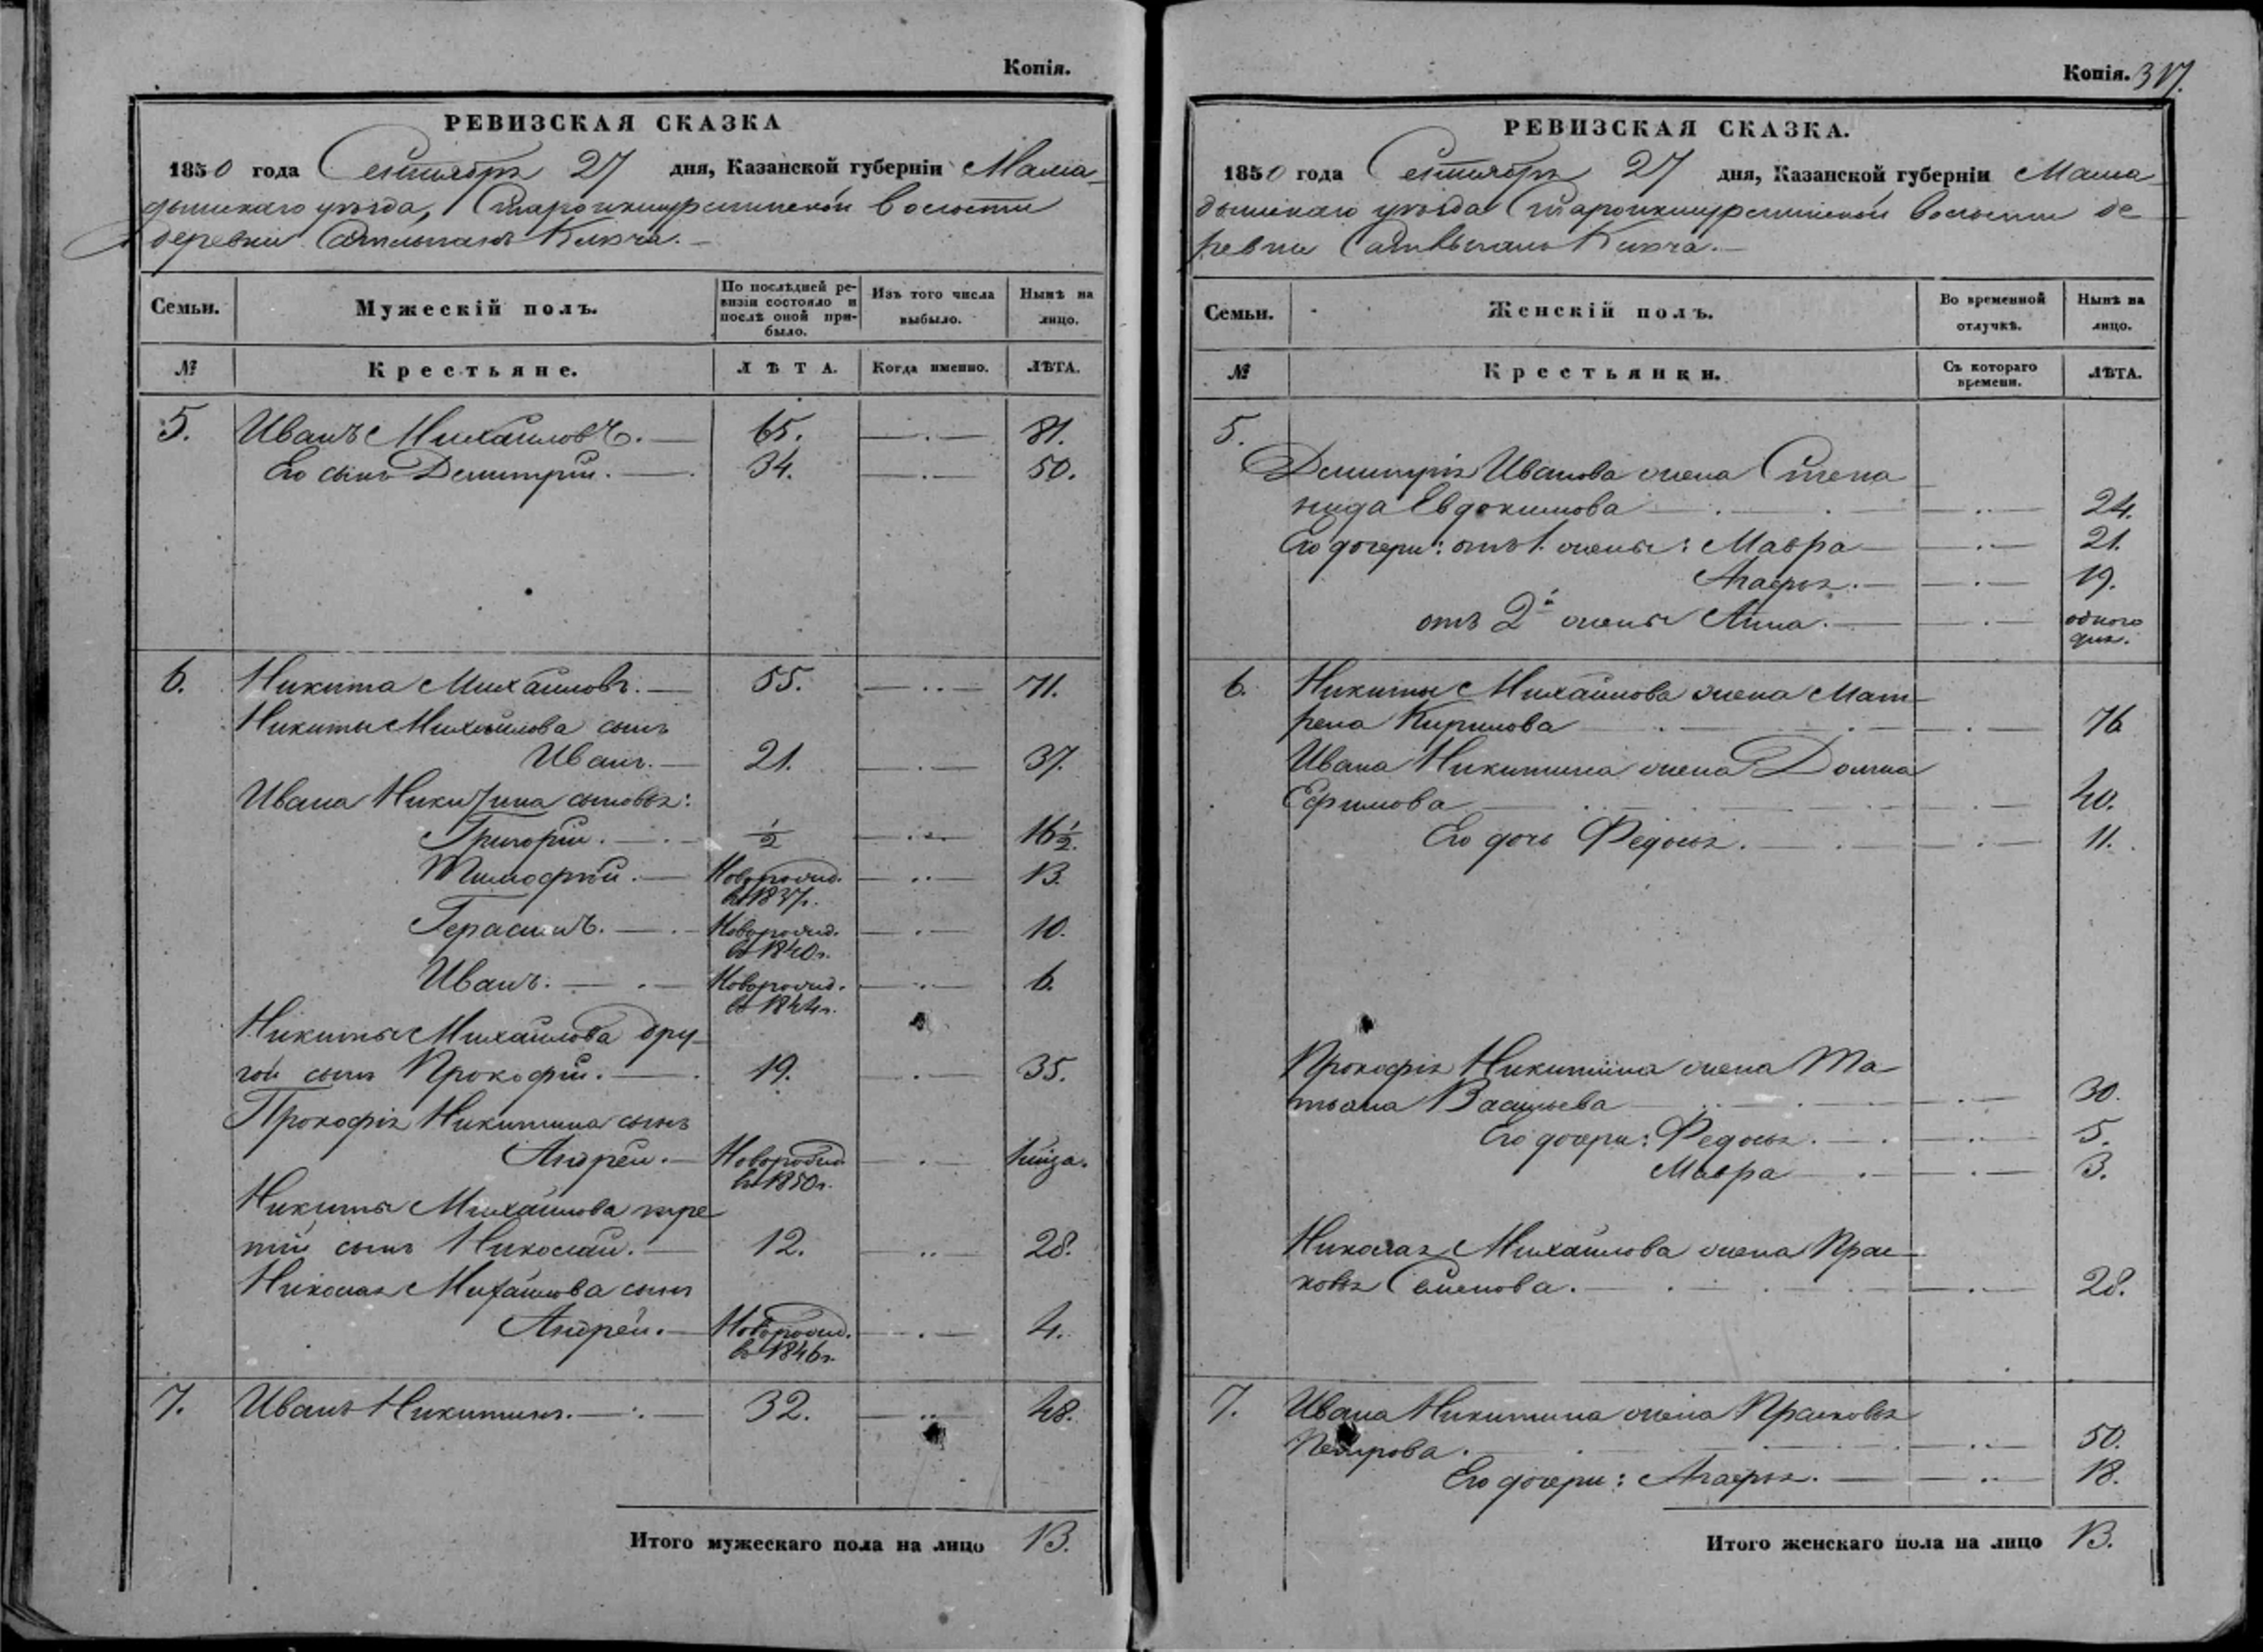 Копія.
РЕВИЗСКАЯ СКАЗКА
1850 года Сентября 27 дня, Казанской губерніи Мама-
дышскаго уѣзда, волости
деревни Кибяча.
Семьи.
Мужескій полъ.
По послѣдней ре-
визіи состояло и
послѣ оной при-
было.
Изъ того числа
выбыло.
Нынѣ на
лицо.
№
Крестьяне.
ЛѢТА.
Когда именно.
ЛѢТА.
5. Иванъ Михайловъ. 65. 81.
Его сынъ Димитрій. 34. 50.
6. Никита Михайловъ. 55. 71.
Никиты Михайлова сынъ
Иванъ. 21. 37.
Ивана Никитина сыновья:
Григорій. 1/2 16 1/2.
Тимофѣй. Новорожд. 13.
въ 1837г.
Герасимъ. Новорожд. 10.
въ 1840г.
Иванъ. Новорожд. 6.
въ 1844г.
Никиты Михайлова дру-
гой сынъ Прокофій. 19. 35.
Прокофія Никитина сынъ
Андрей. Новорожд.
въ 1850г.
Никиты Михайлова тре
тій сынъ Николай. 12. 28.
Николая Михайлова сынъ
Андрей. Новорожд. 4.
въ 1846г.
7. Иванъ Никитинъ. 32. 48.
Итого мужескаго пола на лицо 13.
Копія. 317.
РЕВИЗСКАЯ СКАЗКА.
1850 года Сентября 27 дня, Казанской губерніи Мама
дышскаго уѣзда волости де
ревни Кибяча.
Семьи.
Женскій полъ.
Во временной
отлучкѣ.
Нынѣ на
лицо.
№
Крестьянки.
Съ котораго
времени.
ЛѢТА.
5.
Димитрія Иванова жена Степа
нида Евдокимова 24.
Его дочери: отъ 1. жены: Мавра 21.
Агафья. 19.
отъ 2й жены Анна. одного
дня.
6. Никиты Михайлова жена Мат-
рена Кирилова 76
Ивана Никитина жена Домна
Ефимова 40.
Его дочь Федосья. 11.
Прокофія Никитина жена Та-
тьяна Васильева 30.
Его дочери: Федосья. 5.
Мавра 3.
Николая Михайлова жена Прас-
ковья Семенова. 28.
7. Ивана Никитина жена Прасковья
Петрова. 50.
Его дочери: Агафья. 18.
Итого женскаго пола на лицо 13.